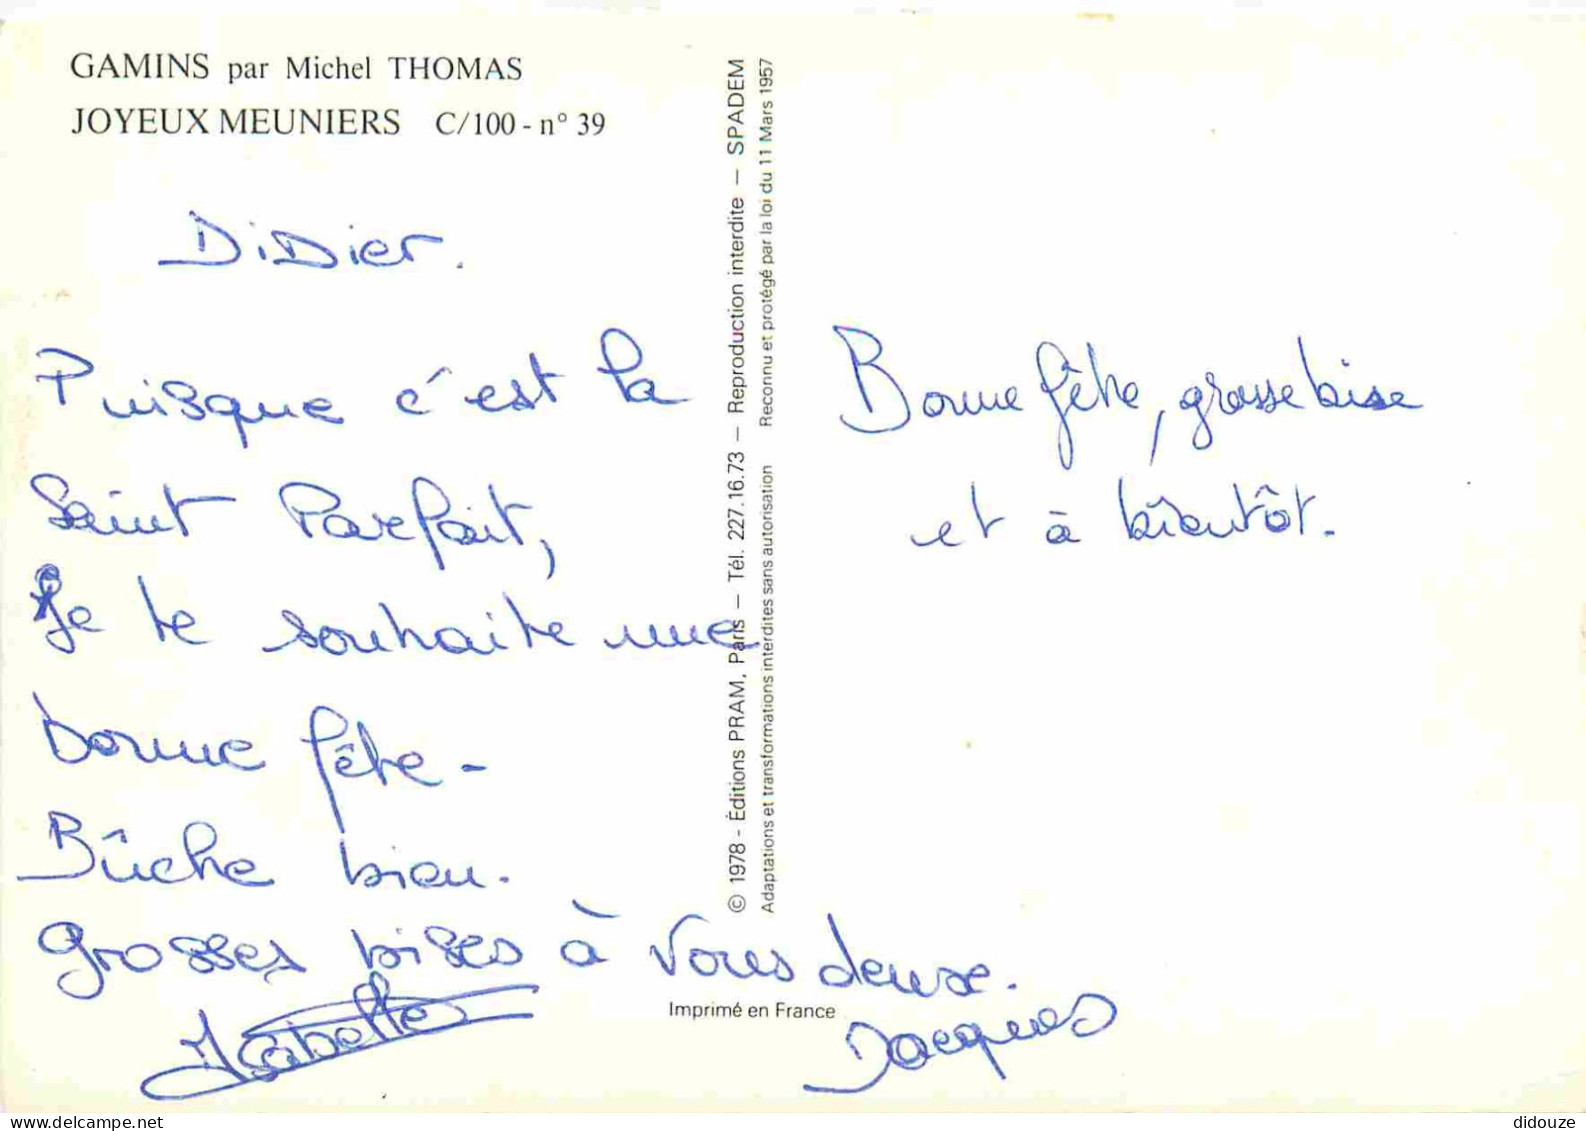 GAMINS par Michel THOMAS
JOYEUX MEUNIERS C/100 - n° 39
DiDier.
Puisque c'est la
Saint Parfait,
Je te souhaite une
bonne fête -
Bûche bien.
Grosses bises à vous deux.
Isabelle
© 1978 - Éditions PRAM, Paris — Tél. 227.16.73 — Reproduction interdite — SPADEM
Adaptations et transformations interdites sans autorisation Reconnu et protégé par la loi du 11 Mars 1957
Imprimé en France
Bonne fête, grosse bise
et à bientôt.
Jacques
didouze